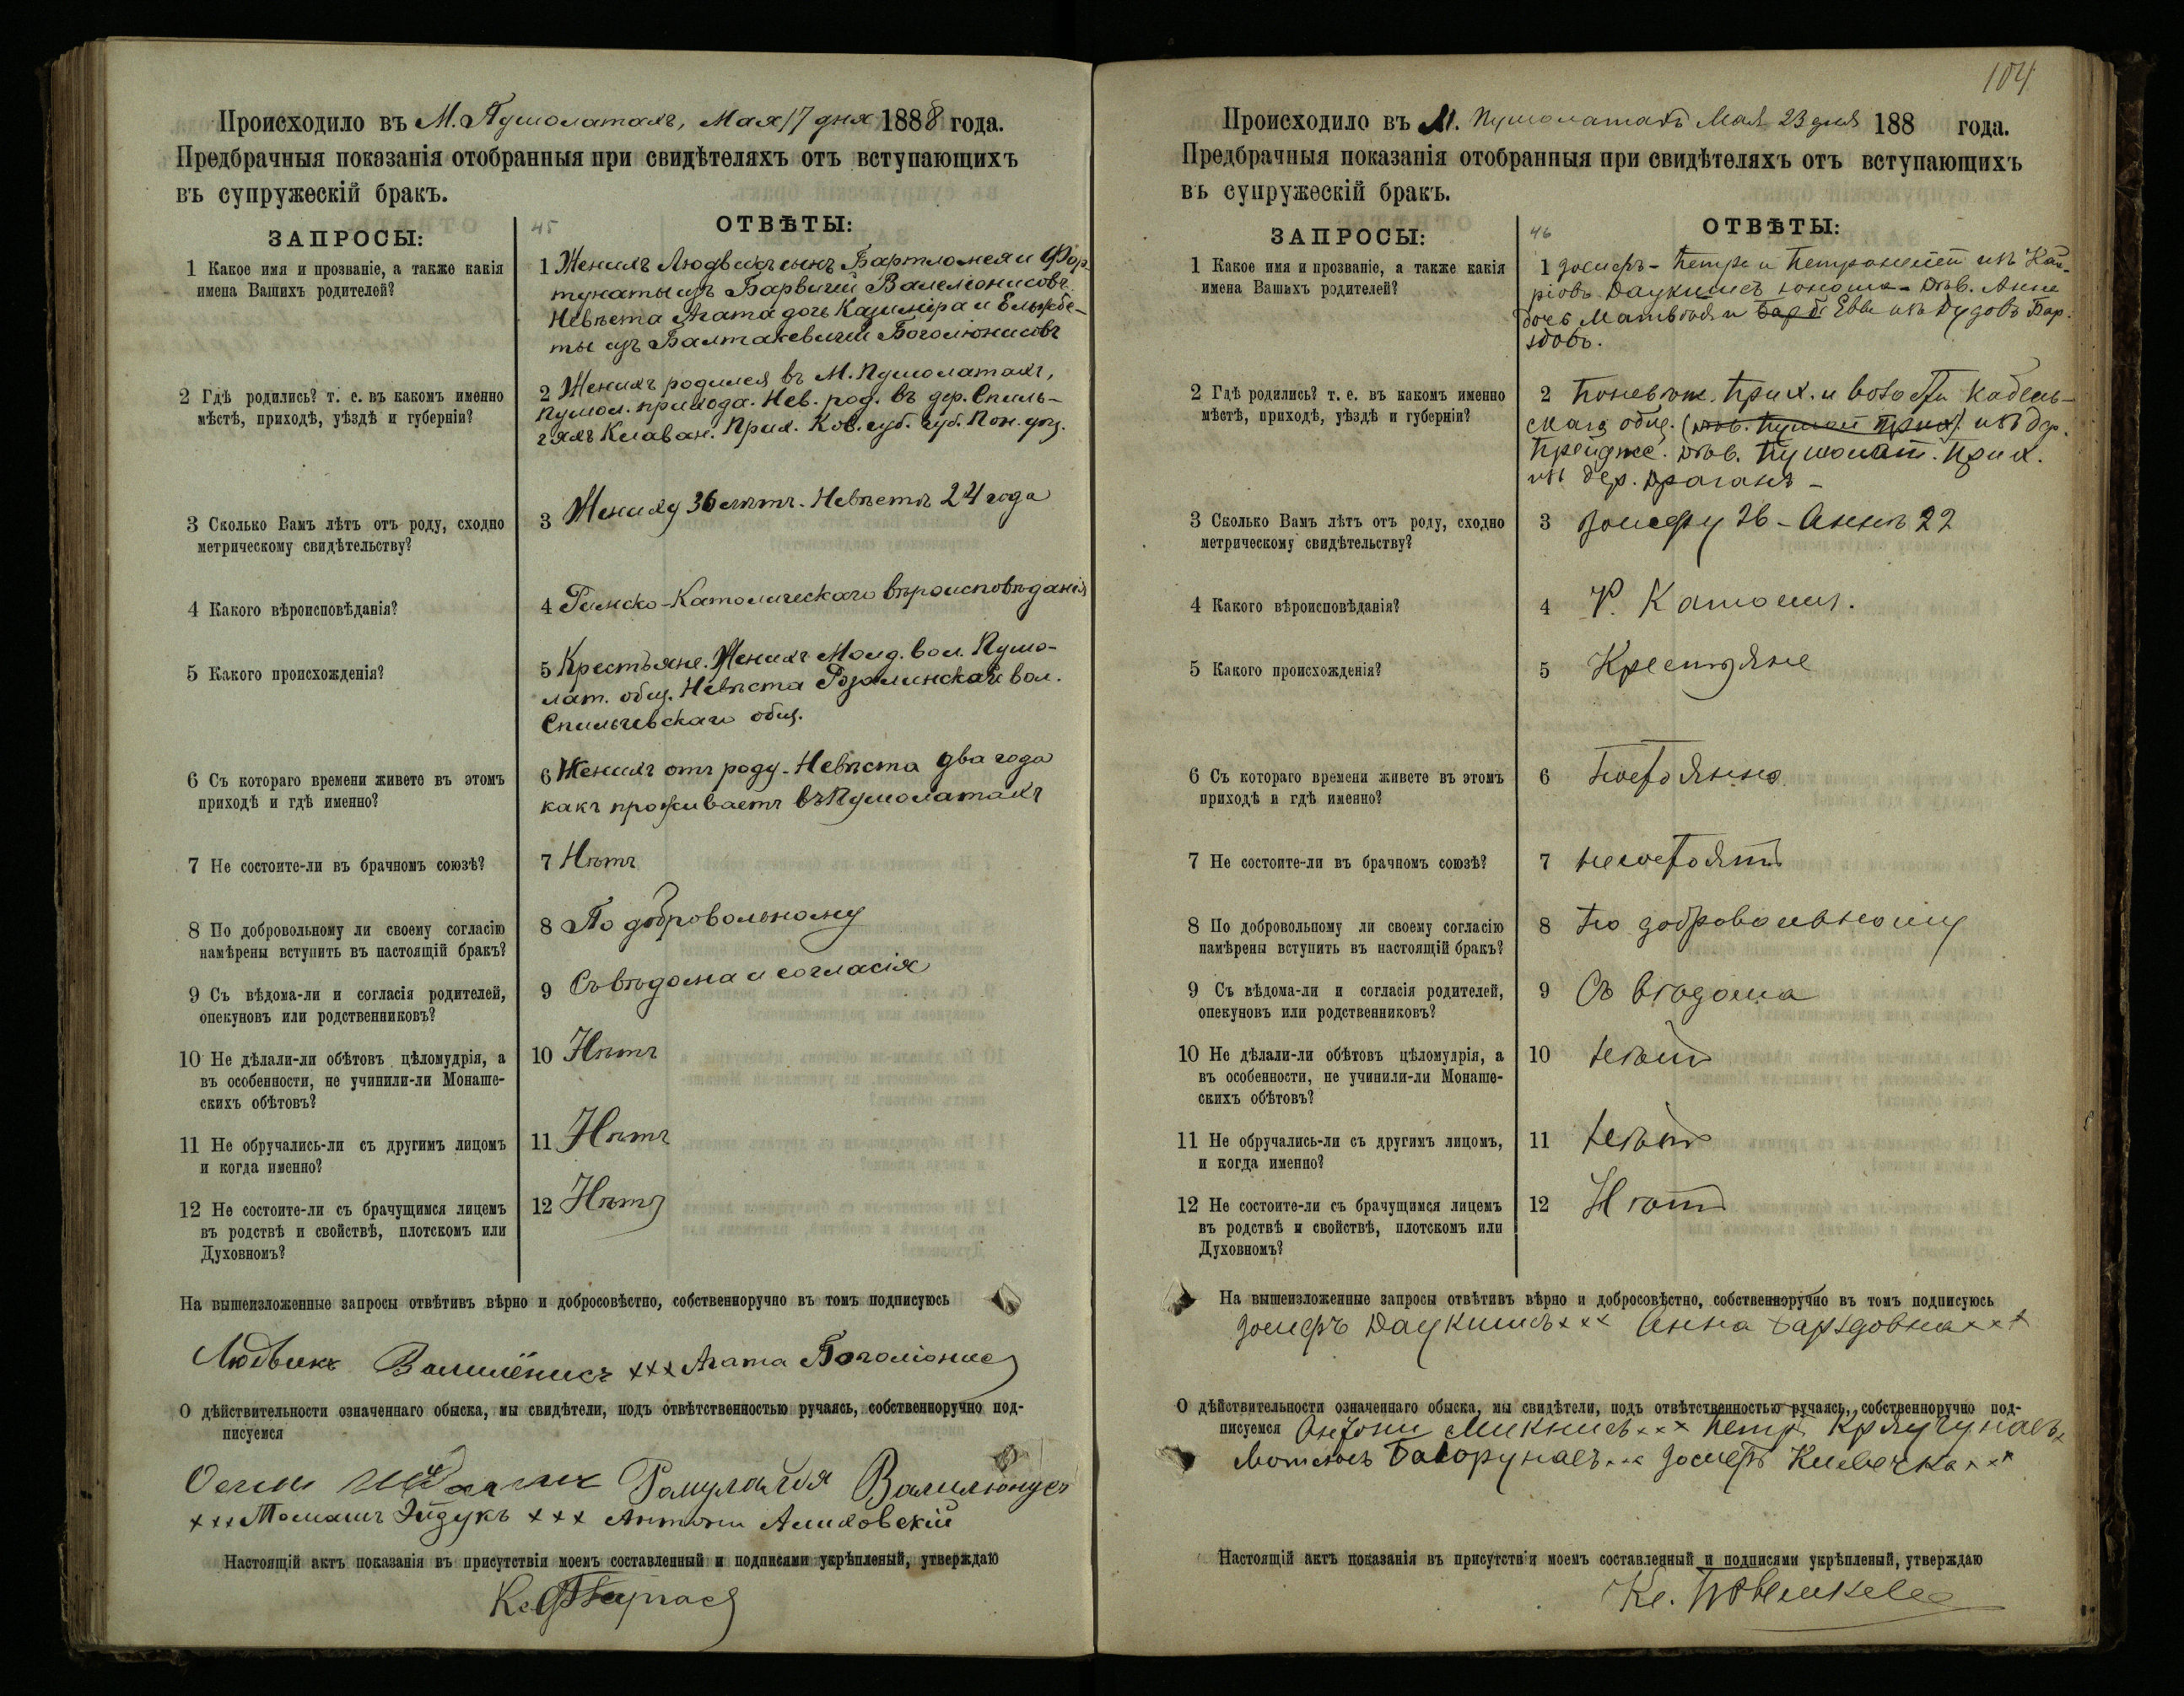 Происходило въ М. Пушолатахъ, Мая 17 дня 1888 года.
Предбрачныя показанія отобранныя при свидѣтеляхъ отъ вступающихъ
въ супружескій бракъ.
45
ЗАПРОСЫ:
ОТВѢТЫ:
1 Какое имя и прозваніе, а также какія
имена Вашихъ родителей?
1 Женихъ Людвикъ сынъ Бартломея и Фор-
тунаты изъ
Невѣста Агата дочь Казимира и Ельжбе-
ты изъ Балтакевичей
2 Гдѣ родились? т. е. въ какомъ именно
мѣстѣ, приходѣ, уѣздѣ и губерніи?
2 Женихъ родился въ М. Пушолатахъ,
Пушол. прихода. Нев. род. въ дер. Спиль-
гяхъ Клаван. Прих. Ков. губ. Пон. уѣз.
3 Сколько Вамъ лѣтъ отъ роду, сходно
метрическому свидѣтельству?
3 Жениху 36 лѣтъ. Невѣстѣ 24 года
4 Какого вѣроисповѣданія?
4 Римско-Католическаго вѣроисповѣданія
5 Какого происхожденія?
5 Крестьяне. Женихъ вол. Пушо-
лат. общ. Невѣста Розалинской вол.
общ.
6 Съ котораго времени живете въ этомъ
приходѣ и гдѣ именно?
6 Женихъ отъ роду. Невѣста два года
какъ проживаетъ въ Пушолатахъ
7 Не состоите-ли въ брачномъ союзѣ?
7 Нѣтъ
8 По добровольному ли своему согласію
намѣрены вступить въ настоящій бракъ?
8 По добровольному
9 Съ вѣдома-ли и согласія родителей,
опекуновъ или родственниковъ?
9 Съ вѣдома и согласія
10 Не дѣлали-ли обѣтовъ цѣломудрія, а
въ особенности, не учинили-ли Монаше-
скихъ обѣтовъ?
10 Нѣтъ
11 Не обручались-ли съ другимъ лицомъ
и когда именно?
11 Нѣтъ
12 Не состоите-ли съ брачущимся лицемъ
въ родствѣ и свойствѣ, плотскомъ или
Духовномъ?
12 Нѣтъ
На вышеизложенные запросы отвѣтивъ вѣрно и добросовѣстно, собственноручно въ томъ подписуюсь
Людвикъ xxx Агата
О дѣйствительности означеннаго обыска, мы свидѣтели, подъ отвѣтственностью ручаясь, собственноручно под-
писуемся
xxx Томашъ Эйдукъ xxx Антони
Настоящій актъ показанія въ присутствія моемъ составленный и подписями укрѣпленый, утверждаю
104
Происходило въ М. Пушолатахъ Мая 23 дня 188 года.
Предбрачныя показанія отобранныя при свидѣтеляхъ отъ вступающихъ
въ супружескій бракъ.
46
ЗАПРОСЫ:
ОТВѢТЫ:
1 Какое имя и прозваніе, а также какія
имена Вашихъ родителей?
1 Іосифъ - Петра и Петронелли изъ Каи-
ріовъ Даукшисъ юноша - дѣв. Анна
дочь Матвѣя и Евы изъ Дудовъ Бар-
здовъ.
2 Гдѣ родились? т. е. въ какомъ именно
мѣстѣ, приходѣ, уѣздѣ и губерніи?
2 Поневѣж. прих. и волости
скаго общ. изъ дер.
дѣв. Пушолат. прих.
изъ дер. Драганъ -
3 Сколько Вамъ лѣтъ отъ роду, сходно
метрическому свидѣтельству?
3 Іосифу 26 - Аннѣ 22
4 Какого вѣроисповѣданія?
4 Р. Католич.
5 Какого происхожденія?
5 Крестьяне
6 Съ котораго времени живете въ этомъ
приходѣ и гдѣ именно?
6 Постоянно
7 Не состоите-ли въ брачномъ союзѣ?
7 несостоятъ
8 По добровольному ли своему согласію
намѣрены вступить въ настоящій бракъ?
8 По добровольному
9 Съ вѣдома-ли и согласія родителей,
опекуновъ или родственниковъ?
9 Съ вѣдома
10 Не дѣлали-ли обѣтовъ цѣломудрія, а
въ особенности, не учинили-ли Монаше-
скихъ обѣтовъ?
10 Нѣтъ
11 Не обручались-ли съ другимъ лицомъ,
и когда именно?
11 Нѣтъ
12 Не состоите-ли съ брачущимся лицемъ
въ родствѣ и свойствѣ, плотскомъ или
Духовномъ?
12 Нѣтъ
На вышеизложенные запросы отвѣтивъ вѣрно и добросовѣстно, собственноручно въ томъ подписуюсь
Іосифъ Даукшисъ xxx Анна Барздовна xxx
О дѣйствительности означеннаго обыска, мы свидѣтели, подъ отвѣтственностью ручаясь, собственноручно под-
писуемся Антони Микнисъ xxx Петръ
Іосифъ xxx
Настоящій актъ показанія въ присутствіи моемъ составленный и подписями укрѣпленый, утверждаю